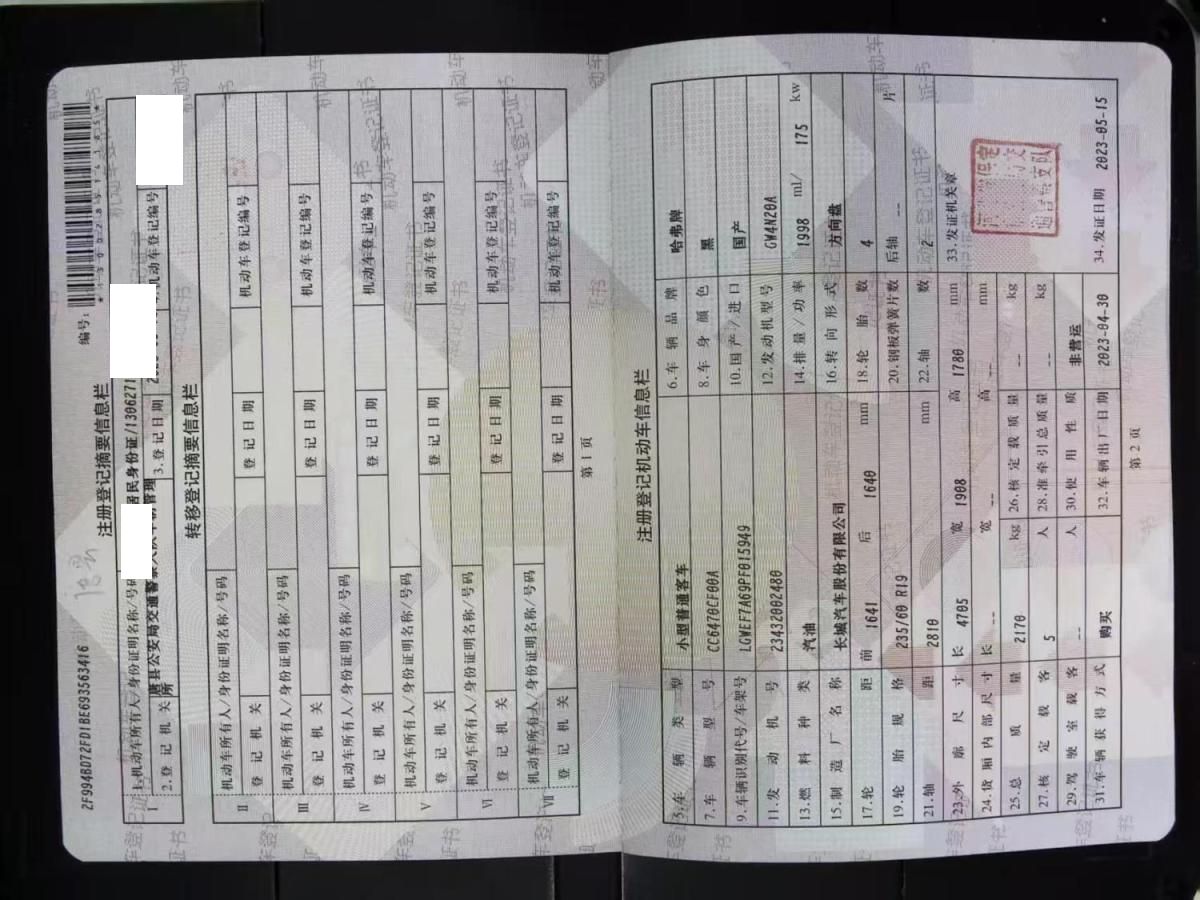 2F994BD72FD1BE693563416
编号:
注册登记摘要信息栏
Ⅰ
1.机动车所有人/身份证明名称/号码 居民身份证/1306271
2.登记机关 唐县公安局交通警察大队车辆管理所 3.登记日期 机动车登记编号
转移登记摘要信息栏
Ⅱ
机动车所有人/身份证明名称/号码
登记机关 登记日期 机动车登记编号
Ⅲ
机动车所有人/身份证明名称/号码
登记机关 登记日期 机动车登记编号
Ⅳ
机动车所有人/身份证明名称/号码
登记机关 登记日期 机动车登记编号
Ⅴ
机动车所有人/身份证明名称/号码
登记机关 登记日期 机动车登记编号
Ⅵ
机动车所有人/身份证明名称/号码
登记机关 登记日期 机动车登记编号
Ⅶ
机动车所有人/身份证明名称/号码
登记机关 登记日期 机动车登记编号
第1页
注册登记机动车信息栏
5.车辆类型 小型普通客车 6.车辆品牌 哈弗牌
7.车辆型号 CC6470CF00A 8.车身颜色 黑
9.车辆识别代号/车架号 LGWEF7A69PF015949 10.国产/进口 国产
11.发动机号 23432002480 12.发动机型号 GW4N20A
13.燃料种类 汽油 14.排量/功率 1998 ml/ 175 kw
15.制造厂名称 长城汽车股份有限公司 16.转向形式 方向盘
17.轮距 前 1641 后 1640 mm 18.轮胎数 4
19.轮胎规格 235/60 R19 20.钢板弹簧片数 后轴 -- 片
21.轴距 2810 mm 22.轴数 2
23.外廓尺寸 长 4705 宽 1908 高 1780 mm 33.发证机关章
24.货厢内部尺寸 长 -- 宽 -- 高 -- mm
25.总质量 2170 kg 26.核定载质量 -- kg
27.核定载客 5 人 28.准牵引总质量 -- kg
29.驾驶室载客 -- 人 30.使用性质 非营运
31.车辆获得方式 购买 32.车辆出厂日期 2023-04-30 34.发证日期 2023-05-15
第2页